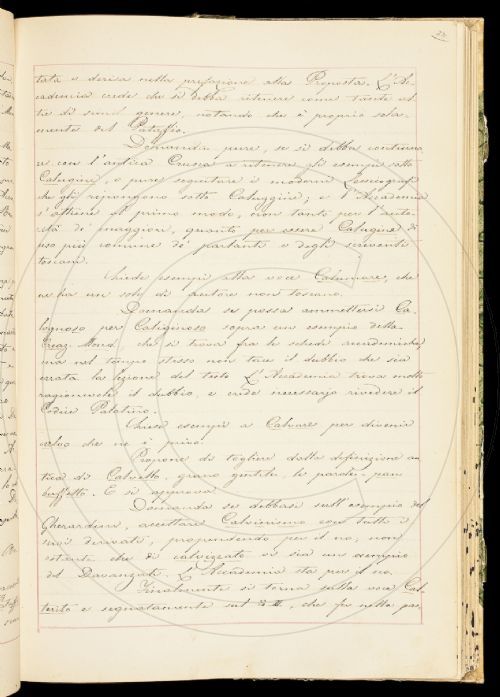 tata e derisa nella prefazione alla Proposta. L'Ac-
cademia crede che si debba ritenere come tante al-
tre di simil genere, notando che è proprio sola-
mente del Pataffio.
Domanda pure, se si debba continua-
re con l'antica Crusca a ritenere gli esempi sotto
Calugine, o pure seguitare i moderni Lessicografi
che gli ripongono sotto Caluggine; e l'Accademia
s'attiene al primo modo, non tanto per l'auto-
rità di maggiori, quanto per essere Calugine di
uso più comune de' parlanti e degli scriventi
toscani.
Chiede esempi alla voce Calumare, che
ne ha un solo di autore non toscano.
Domanda se possa ammettersi Ca-
lognoso per Caliginoso sopra un esempio della
Creaz. Mond. che si trova fra le schede accademiche
ma nel tempo stesso non tace il dubbio che sia
errata la lezione del testo. L'Accademia trova molto
ragionevole il dubbio, e crede necessario rivedere il
Codice Palatino.
Chiese esempi a Calvare per divenir
calvo che ne è privo.
Propone di togliere dalla definizione an-
tica di Calvello, grano gentile, le parole: pan
buffetto. E si approva.
Domanda se debbasi sull'esempio del
Gherardini, accettare Calvinismo con tutti i
suoi derivati, propendendo per il no, non
ostante che di calvizzato vi sia un esempio
del Davanzati. L'Accademia sta per il no.
Finalmente si torna sulla voce Cal-
terito e segnatamente sul , che fu nella pas-